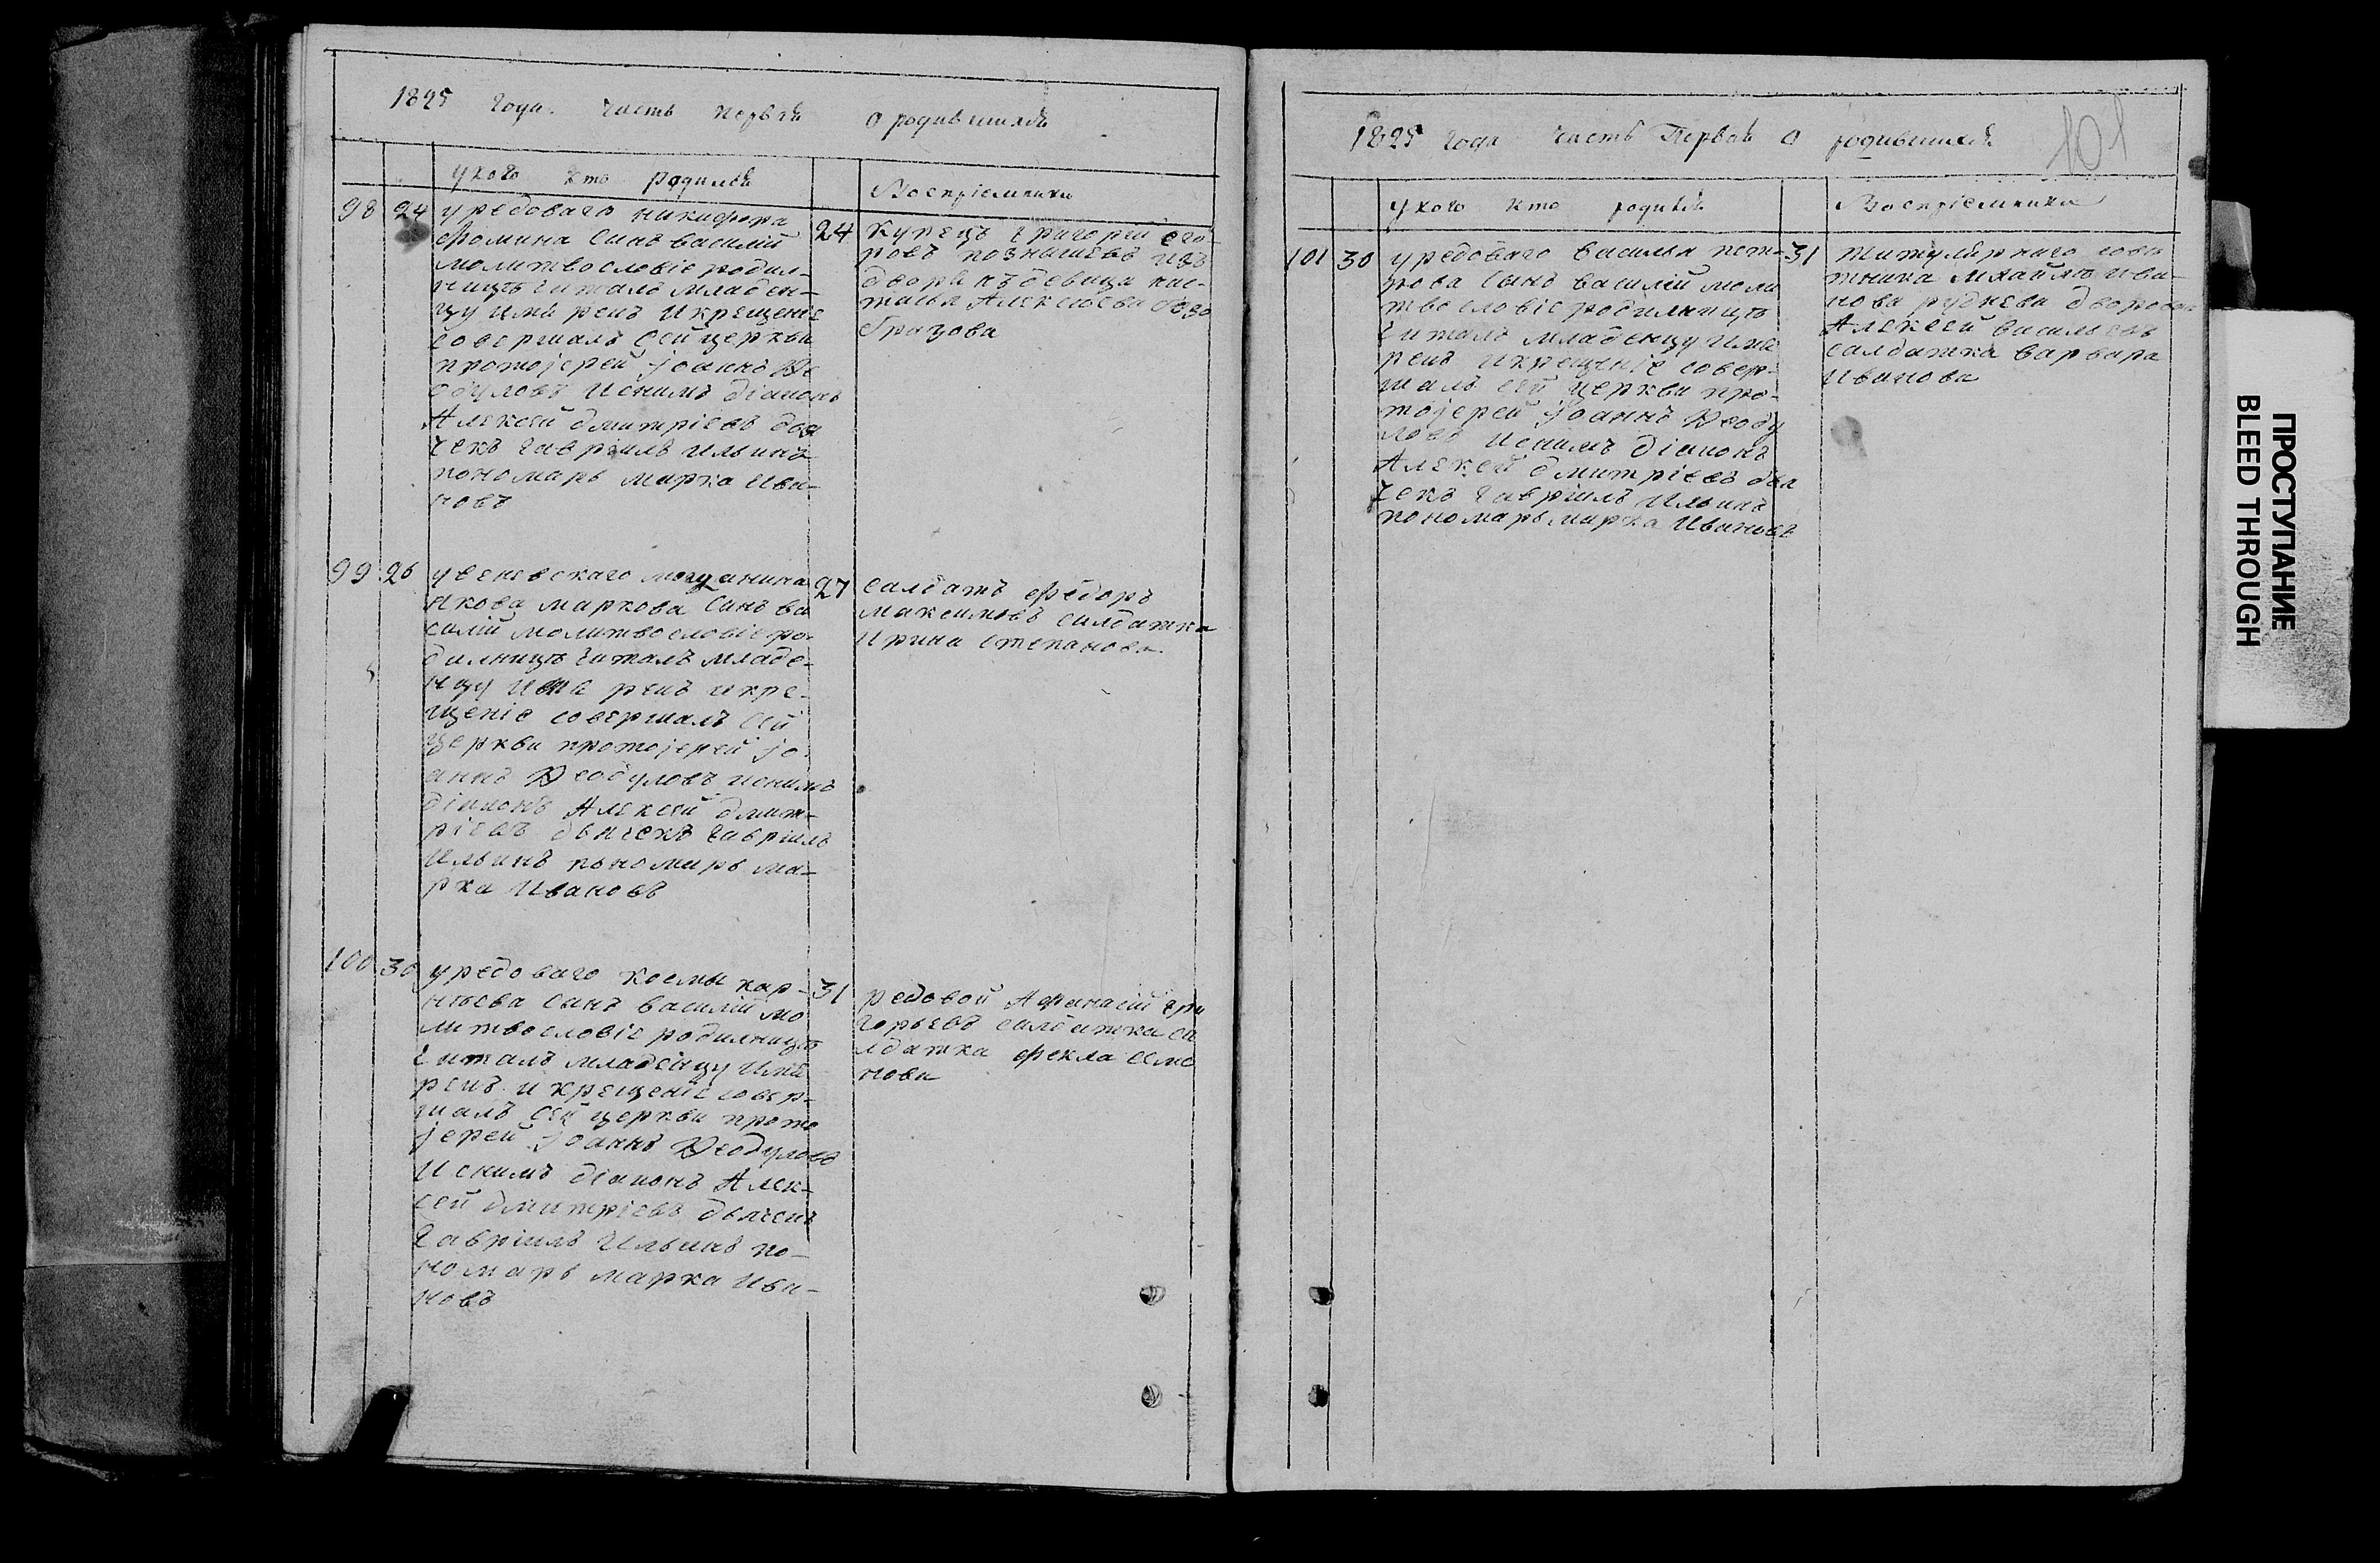 1825 года. часть первая о родившихся
у кого кто родился
Воспріемники
98 24 у редоваго никифора
фомина Синъ василий
молитвословіе родил-
ницъ читалъ младен-
цу имя рекъ И крещеніе
совершалъ Сей церкви
протоіерей іоаннъ Ѳе
одуловъ И снимъ діаконъ
Алексей дмитріевъ дья
чекъ гавріилъ ильинъ
пономарь марка Ива-
новъ
24 купецъ григорей его-
ровъ из
дворянъ девица нас-
тасья Алексеева
99 26 мещанина
Якова маркова Синъ ва
силій молитвословіе ро-
дилницъ читалъ младе-
нцу имя рекъ и кре-
щеніе совершалъ Сей
церкви протоіерей іо-
аннъ Ѳеодуловъ иснимъ
діаконъ Алексей дмит-
ріевъ дьячекъ гавріилъ
Ильинъ пономарь ма-
рка Ивановъ
27 салдатъ федоръ
максимовъ салдатка
Ирина степанова
100 30 у редоваго космы кар-
нѣева Синъ василій мо
литвословіе родилницъ
читалъ младенцу имя
рекъ и крещеніе совер-
шалъ Сей церкви прото
іерей іоаннъ Ѳеодуловъ
И снимъ діаконъ Алек-
сей дмитріевъ дьячекъ
гавріилъ Ильинъ по-
номарь марка Ива-
новъ
31 редовой Афанасій гри
горьевъ салдатка са
лдатка фекла семе
нова
1825 года часть Первая о родившихся
101
у кого кто родился
Воспріемники
101 30 у редоваго василья пет-
рова Сынъ василій моли
твословіе родилницъ
читалъ младенцу имя
рекъ и крещеніе совер-
шалъ сей церкви про-
тоіерей іоаннъ Ѳеоду
ловъ иснимъ діаконъ
Алексей дмитріевъ дья
чекъ гавріилъ Ильинъ
пономарь марка Ивановъ
31 титулярнаго совѣ
тника михайлы ива-
нова руднева дворовой
Алексей васильевъ
салдатка варвара
Иванова
ПРОСТУПАНИЕ
BLEED THROUGH